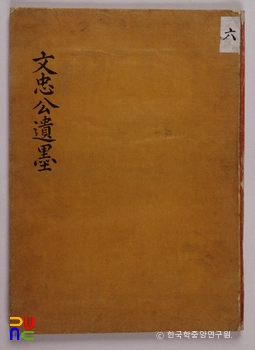 六
文忠公遺墨
© 한국학중앙연구원